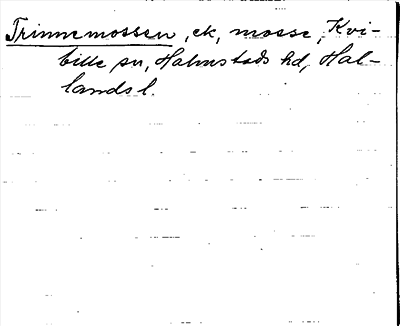 Trinnemossen, ek, mosse, Kvi-
bille sn, Halmstads hd, Hal-
lands l.